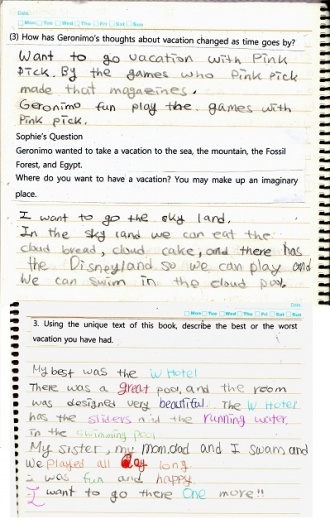 Date.
Mon Tue Wed Thu Fri Sat Sun
(3) How has Geronimo's thoughts about vacation changed as time goes by?
Want to go vacation with Pink
Pick. By the games who Pink Pick
made that magazines.
Geronimo fun play the games with
Pink pick.
Sophie's Question
Geronimo wanted to take a vacation to the sea, the mountain, the Fossil
Forest, and Egypt.
Where do you want to have a vacation? You may make up an imaginary
place.
I want to go the sky land.
In the sky land we can eat the
cloud bread, cloud cake, and there has
the Disneyland so we can play and
We can swim in the cloud pool.
Date.
Mon Tue Wed Thu Fri Sat Sun
3. Using the unique text of this book, describe the best or the worst
vacation you have had.
My best was the W Hotel
There was a great pool, and the room
was designed very beautiful. The W Hotel
has the sliders and the running water
in the swimming pool
My sister, my mom, dad and I swam, and
We played all day long
it was fun and happy
I want to go there One more!!